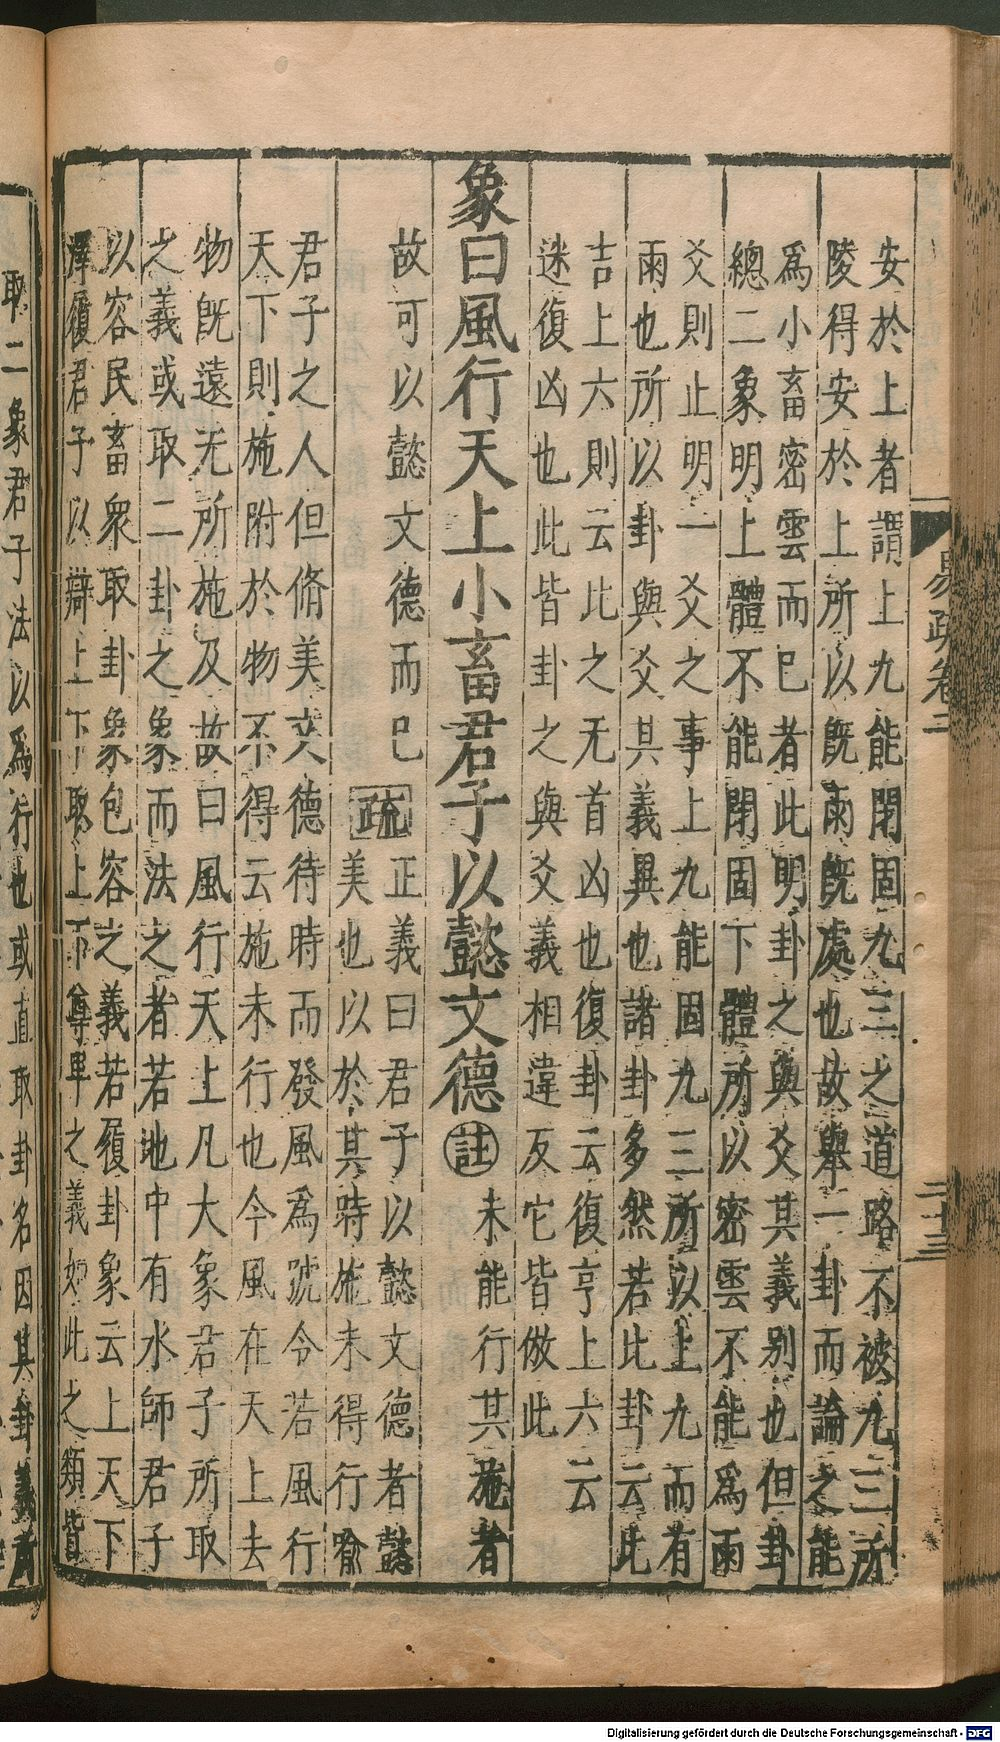 安於上者謂上九能閉固九三之道路不被九三所
陵得安於上所以旣雨旣處也故舉一卦而論之能
爲小畜密雲而已者此明卦之與爻其義别也但卦
總二象明上體不能閉固下體所以密雲不能爲雨
爻則止明一爻之事上九能固九三所以上九而有
雨也所以卦與爻其義異也諸卦多然若比卦云比
吉上六則云比之无首凶也復卦云復亨上六云
迷復凶也此皆卦之與爻義相違反它皆倣此
象曰風行天上小畜君子以懿文德
註
未能行其施者
故可以懿文德而已
疏
正義曰君子以懿文德者懿
美也以於其時施未得行喻
君子之人但脩美文德待時而發風爲號令若風行
天下則施附於物不得云施未行也今風在天上去
物旣遠无所施及故曰風行天上凡大象君子所取
之義或取二卦之象而法之者若地中有水師君子
以容民畜衆取卦象包容之義若履卦象云上天下
澤履君子以辯上下取上下尊卑之義如此之類皆
取二象君子法以爲行也或直取卦名因其卦義所
易疏卷二
二十三
Digitalisierung gefördert durch die Deutsche Forschungsgemeinschaft - DFG